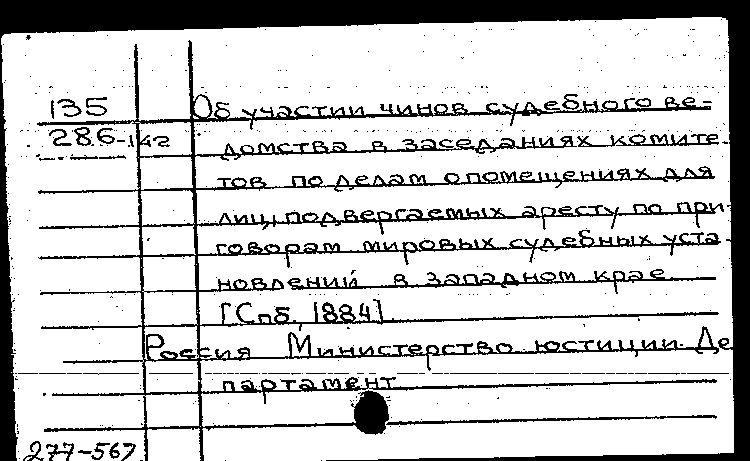 135 Об участии чинов судебного ве=
286-142 домства в заседаниях комите-
тов по делам о помещениях для
лиц, подвергаемых аресту по при-
говорам мировых судебных уста-
новлений в западном крае.
[Спб, 1884].
Россия Министерство юстиции. Де
партамент
277-567